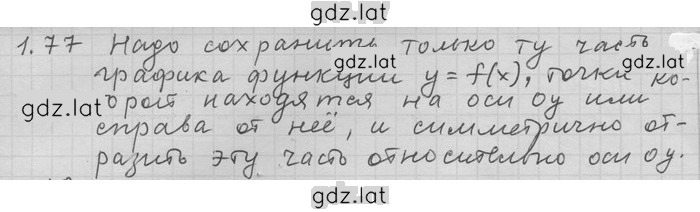 gdz.lat
1.77 Надо сохранить только ту часть
графика функции y = f(x), точки ко-
gdz.lat
gdz.lat
торой находятся на оси oy или
справа от неё, и симметрично от-
разить эту часть относительно оси oy.
gdz.lat